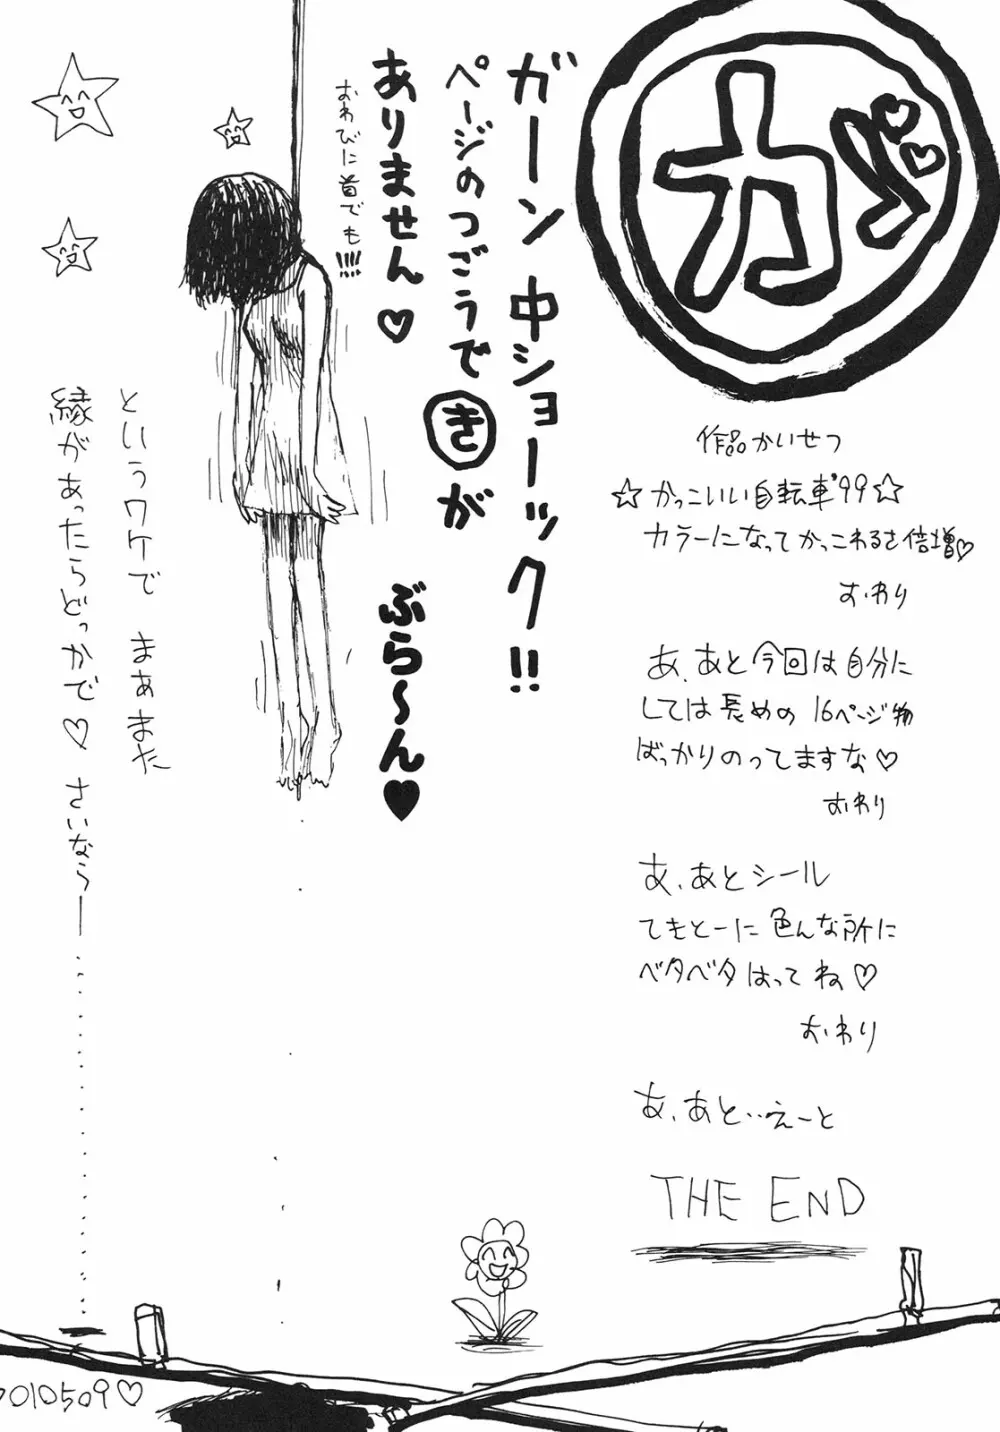 ガ
作品かいせつ
☆かっこいい自転車'99☆
カラーになってかっこわるさ倍増♡
おわり
あ、あと今回は自分に
しては長めの16ページ物
ばっかりのってますな♡
おわり
あ、あとシール
てきとーに色んな所に
ベタベタはってね♡
おわり
あ、あと‥えーと
THE END
ガーン中ショーック!!
ページのつごうでㅤきが
ありません♡
おわびに首でも!!!!
ぶら〜ん♥
というワケで まぁまた
縁があったらどっかで♡ さいならー…………
♡010509♡